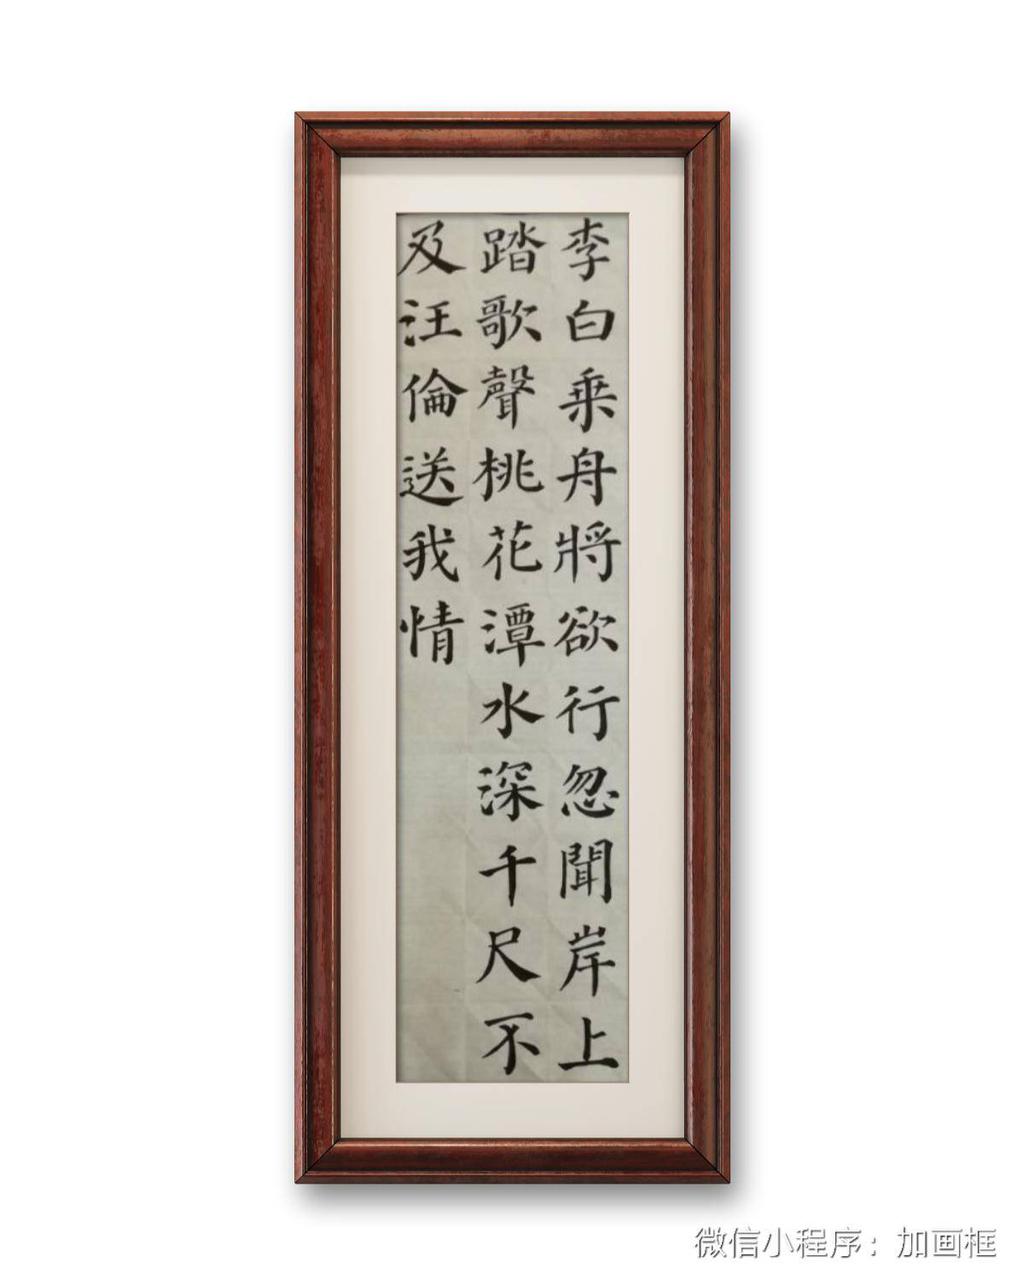 李白乘舟將欲行忽聞岸上
踏歌聲桃花潭水深千尺不
及汪倫送我情
微信小程序：加画框